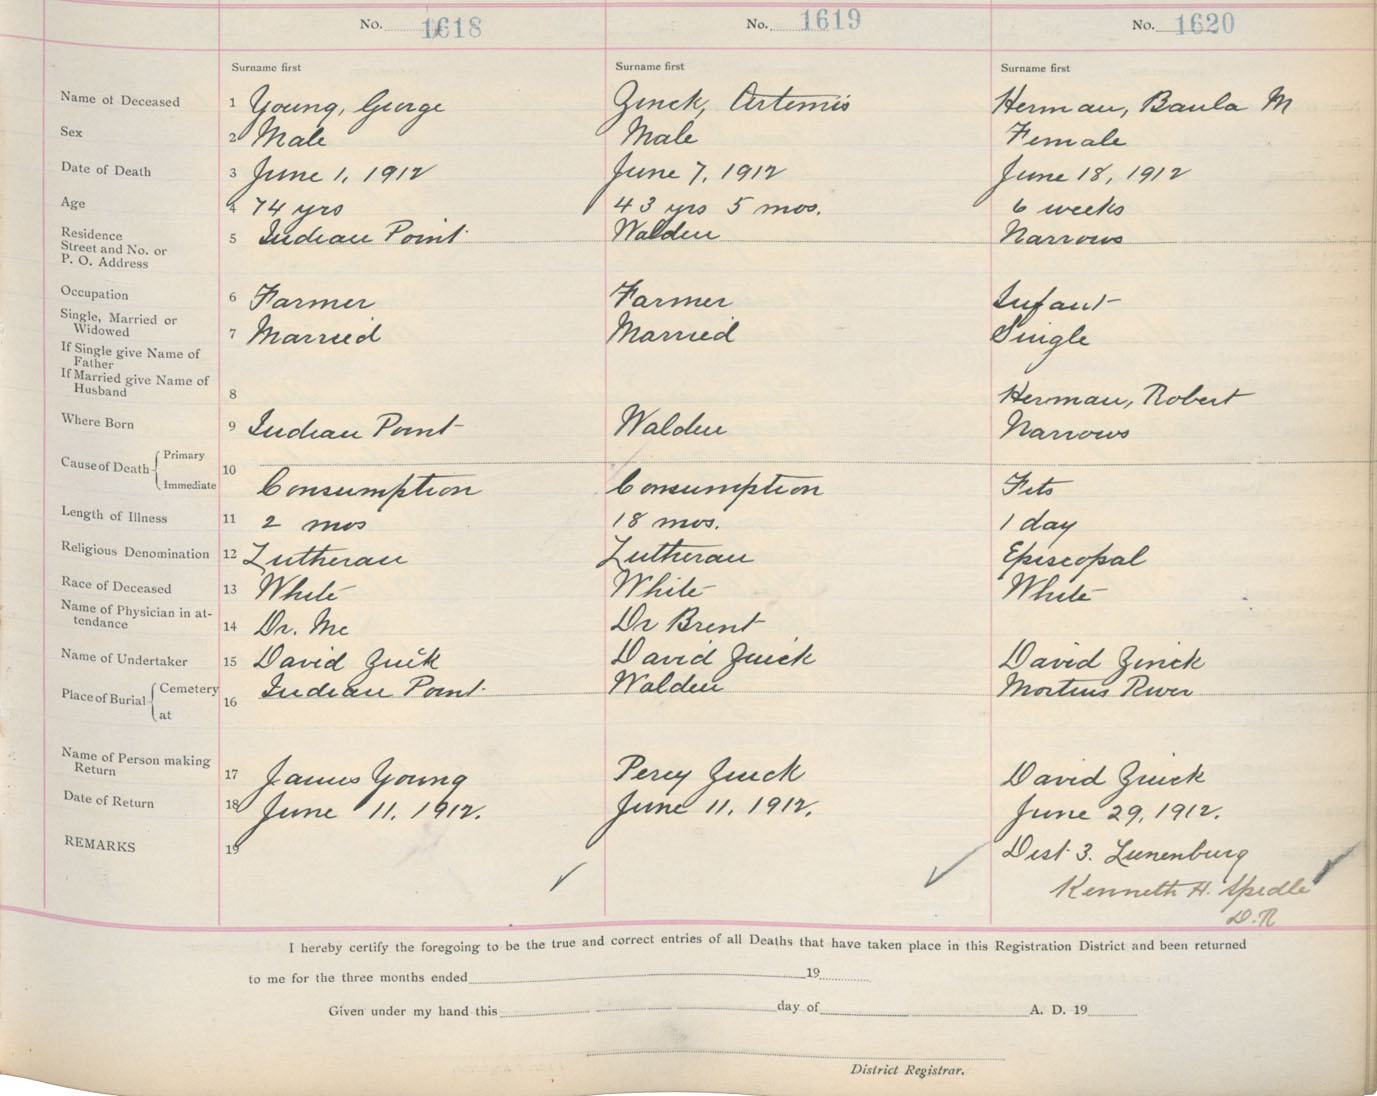 No. 1618 No. 1619 No. 1620
Surname first Surname first Surname first
Name of Deceased 1 Young, George Zinck, Artemis Herman, Baula M
Sex 2 Male Male Female
Date of Death 3 June 1, 1912 June 7, 1912 June 18, 1912
Age 4 74 yrs 43 yrs 5 mos. 6 weeks
Residence
Street and No. or 5 Indian Point Walden Narrows
P. O. Address
Occupation 6 Farmer Farmer Infant
Single, Married or
Widowed 7 Married Married Single
If Single give Name of
Father
If Married give Name of
Husband 8 Herman, Robert
Where Born 9 Indian Point Walden Narrows
Cause of Death Primary 10
Immediate Consumption Consumption Fits
Length of Illness 11 2 mos 18 mos. 1 day
Religious Denomination 12 Lutheran Lutheran Episcopal
Race of Deceased 13 White White White
Name of Physician in at-
tendance 14 Dr. Mc Dr Brent
Name of Undertaker 15 David Zink David Zinck David Zinck
Place of Burial Cemetery 16 Indian Point Walden Martins River
at
Name of Person making
Return 17 James Young Percy Zinck David Zinck
Date of Return 18 June 11, 1912. June 11, 1912. June 29, 1912.
REMARKS 19 Dist 3. Lunenburg
Kenneth H. Spidle
D.R
I hereby certify the foregoing to be the true and correct entries of all Deaths that have taken place in this Registration District and been returned
to me for the three months ended 19
Given under my hand this day of A. D. 19
District Registrar.